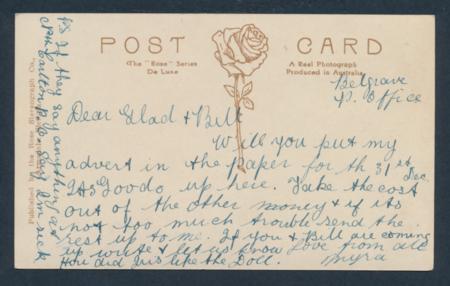 POST CARD
The "Rose" Series
De Luxe
A Real Photograph
Produced in Australia
Published by the Rose Stereograph Co.
Belgrave
P. Office
Dear Glad & Bill
Will you put my
advert in the paper for th 31st Dec.
up here. Take the cost
out of the other money & if its
not too much trouble send the
rest up to me. If you & Bill are coming
up write & let us know Love from all
How did Jus like the Doll. Myra
PS If they say anything at
Nth Carlton P.O. say I'm sick